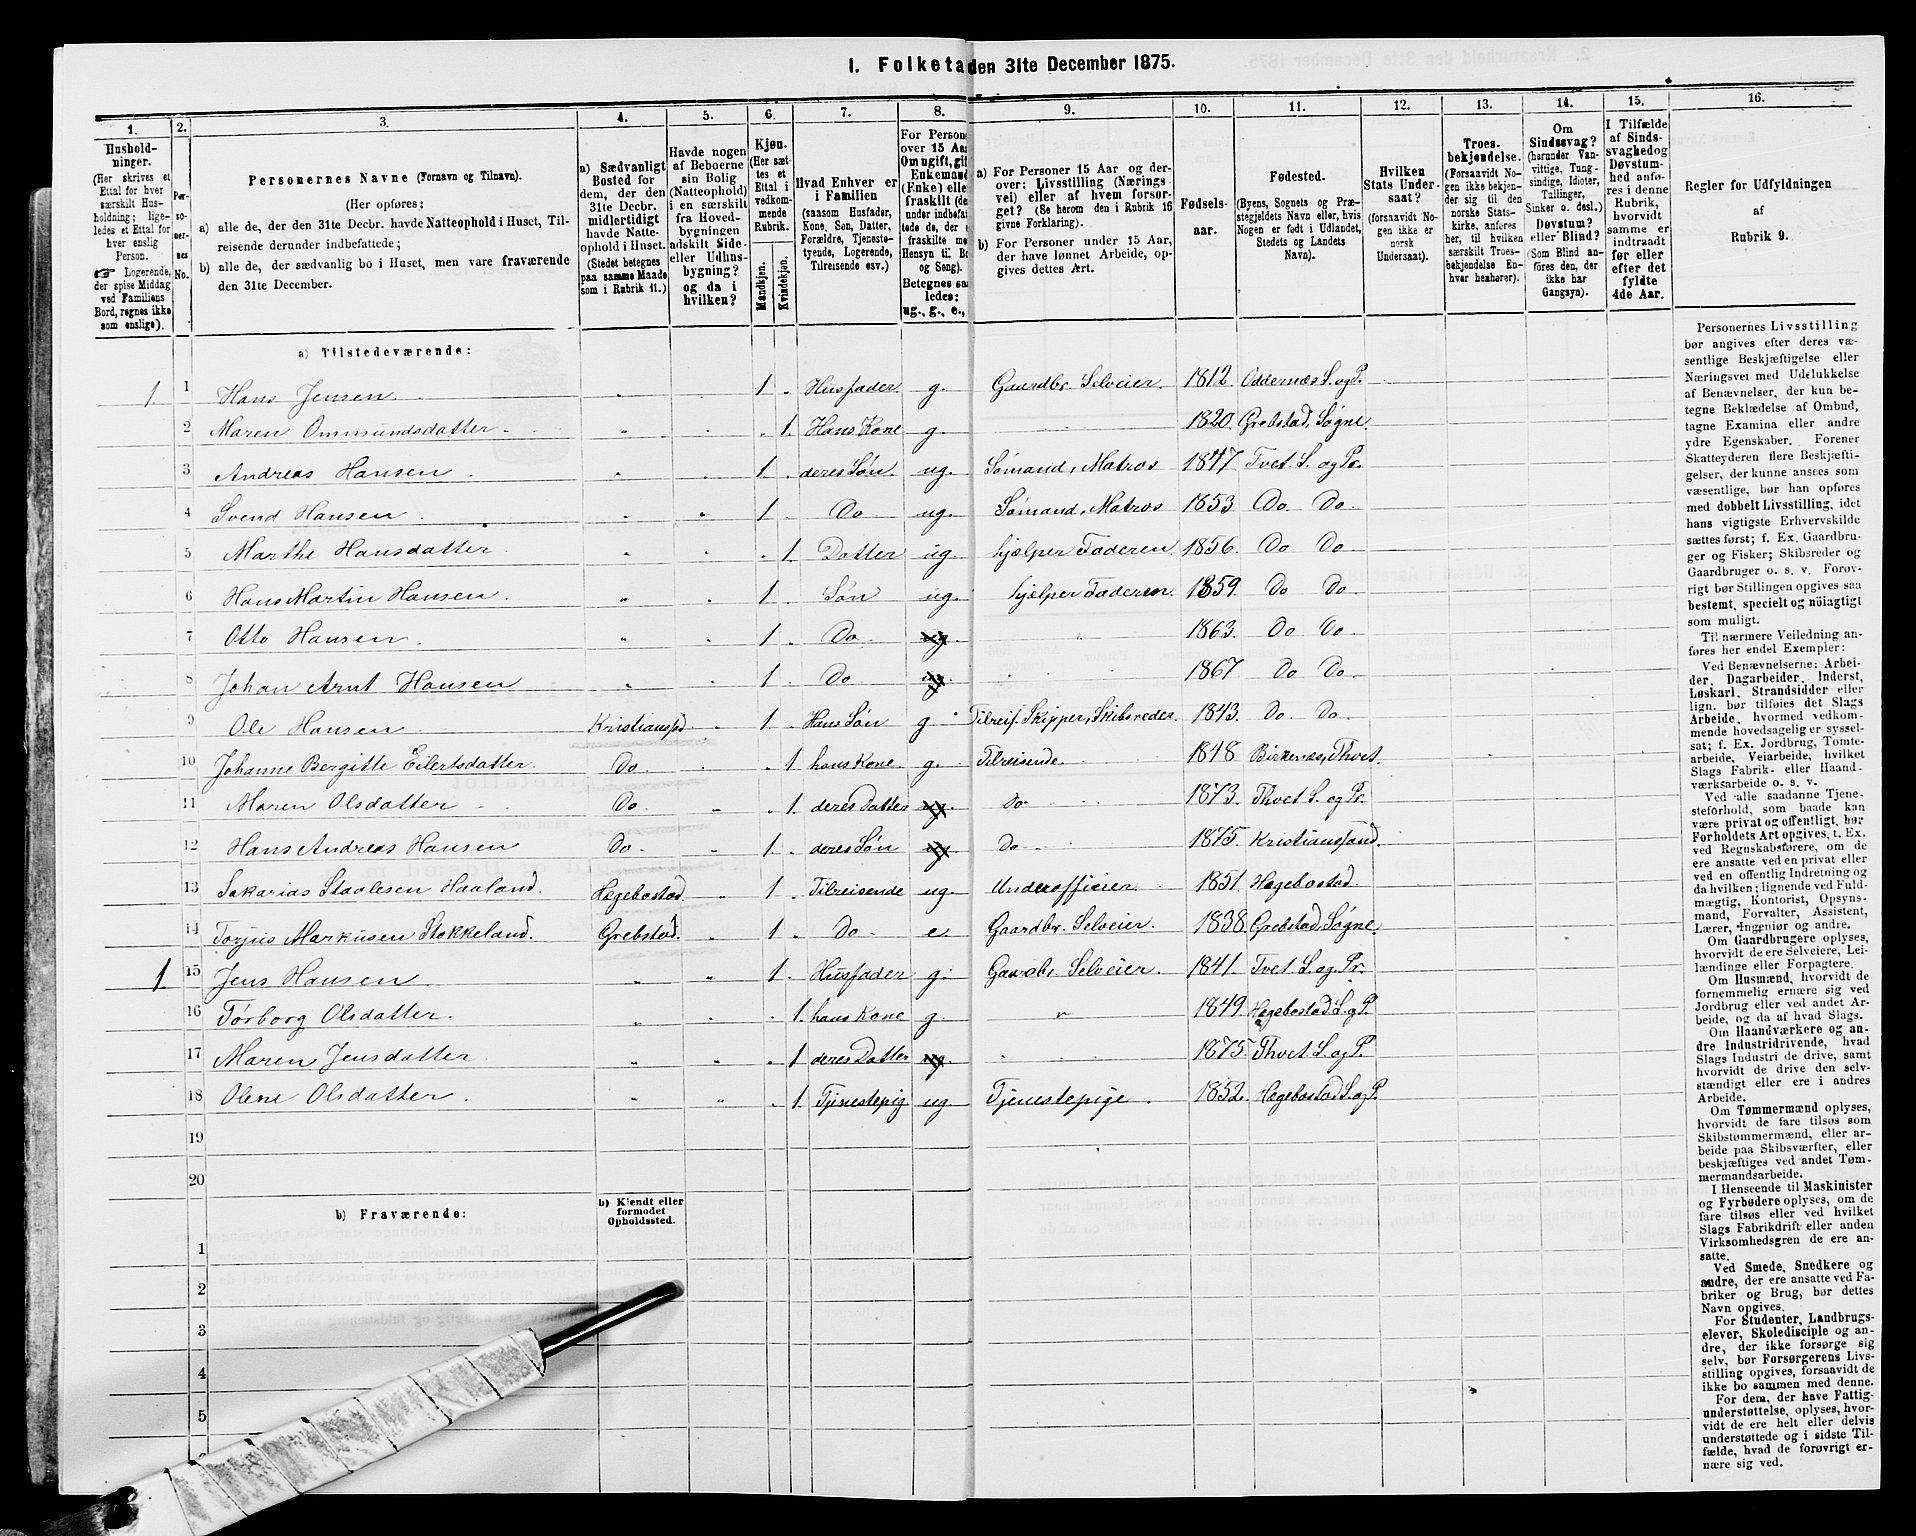 I. Folketa den 31te December 1875.
1. 2. 3. 4. 5. 6. 7. 8. 9. 10. 11. 12. 13. 14. 15. 16.
Hushold-
ninger.
(Her skrives et
Ettal for hver
særskilt Hus-
holdning; lige-
ledes et Ettal for
hver enslig
Person.
☞ Logerende,
der spise Middag
ved Familiens
Bord, regnes ikke
som enslige).
Per-
so-
ner-
nes
No.
Personernes Navne (Fornavn og Tilnavn).
(Her opføres:
a) alle de, der den 31te Decbr. havde Natteophold i Huset, Til-
reisende derunder indbefattede;
b) alle de, der sædvanlig bo i Huset, men vare fraværende
den 31te December.
a) Sædvanligt
Bosted for
dem, der den
31te Decbr.
midlertidigt
havde Natte-
ophold i Huset.
(Stedet betegnes
paa samme Maade
som i Rubrik 11.)
Havde nogen
af Beboerne
sin Bolig
(Natteophold)
i en særskilt
fra Hoved-
bygningen
adskilt Side-
eller Udhus-
bygning?
og da i
hvilken?
Kjøn.
(Her sæt-
tes et
Ettal i
vedkom-
mende
Rubrik.
Mandkjøn.
Kvindekjøn.
Hvad Enhver er
i Familien
(saasom Husfader,
Kone, Søn, Datter,
Forældre, Tjeneste-
tyende, Logerende,
Tilreisende osv.)
For Persone
over 15 Aar
Om ugift, gif
Enkemand
(Enke) elle
fraskilt (de
under indbefa
tede de, der e
fraskilte me
Hensyn til Bo
og Seng).
Betegnes saa
ledes:
ug., g., e.,
a) For Personer 15 Aar og der-
over: Livsstilling (Nærings
vei) eller af hvem forsør-
get? (Se herom den i Rubrik 16
givne Forklaring).
b) For Personer under 15 Aar,
der have lønnet Arbeide, op-
gives dettes Art.
Fødsels-
aar.
Fødested.
(Byens, Sognets og Præ-
stegjeldets Navn eller, hvis
Nogen er født i Udlandet,
Stedets og Landets
Navn).
Hvilken
Stats Under-
saat?
(forsaavidt No-
gen ikke er
norsk
Undersaat).
Troes-
bekjendelse.
(Forsaavidt No-
gen ikke bekjen-
der sig til den
norske Stats-
kirke, anføres
her, til hvilken
særskilt Troes-
bekjendelse En-
hver henhører).
Om
Sindssvag?
(herunder Van-
vittige, Tung-
sindige, Idioter,
Tullinger,
Sinker o. desl.)
Døvstum?
eller Blind?
(Som Blind an-
føres den, der
ikke har
Gangsyn).
I Tilfælde
af Sinds-
svaghed og
Døvstum-
hed anfø-
res i denne
Rubrik,
hvorvidt
samme er
indtraadt
før eller
efter det
fyldte
4de Aar.
Regler for Udfyldningen
af
Rubrik 9.
a) Tilstedeværende:
1 1 Hans Jensen 1 Husfader g. Gaardbr. Selveier. 1812. Oddernæs S. og P.
2 Maren Ommundsdatter 1. Hans Kone g. 1820. Grebstad, Søgne
3 Andreas Hansen 1 deres Søn ug. Sømand, Matros 1847 Tvet S. og Pr.
4 Svend Hansen 1 Do ug. Sømand, Matros 1853 Do Do
5 Marthe Hansdatter 1 Datter ug. hjælper Faderen 1856. Do Do
6 Hans Martin Hansen 1 Søn ug. hjælper Faderen 1859. Do Do
7 Otto Hansen 1 Do ug. 1863. Do Do
8 Johan Arnt Hansen 1 Do ug. 1867 Do Do
9 Ole Hansen Kristianssd 1 Hans Søn g Tilreis. Skipper, Skibsreder 1843. Do Do
10 Johanne Bergitte Eilertsdatter Do 1 hans Kone g. Tilreisende. 1848 Birkenæs, Thvet
11 Maren Olsdatter Do 1 deres Datter ug. Do 1873. Thvet S. og Pr.
12 Hans Andreas Hansen Do 1 deres Søn ug. Do 1875. Kristianssand.
13 Sakarias Staalesen Haaland. Hægebostad 1 Tilreisende ug. Underofficier 1851. Hægebostad.
14 Torjus Markusen Stokkeland. Grebstad. 1 Do e Gaardbr. Selveier. 1838. Grebstad, Søgne
1 15 Jens Hansen 1 Husfader g. Gaardbr. Selveier. 1841. Tvet S. og Pr.
16 Tørborg Olsdatter. 1. hans Kone g. 1849. Hægebostad S. og P.
17 Maren Jensdatter 1 deres Datter ug. 1875. Thvet S. og P.
18 Olene Olsdatter 1. Tjenestepig ug. Tjenestepige. 1852. Hægebostad S. og P.
19
20
b) Fraværende:
b) Kjendt eller
formodet
Opholdssted.
1
2
3
4
5
Personernes Livsstilling
bør angives efter deres væ-
sentlige Beskjæftigelse eller
Næringsvei med Udelukkelse
af Benævnelser, der kun be-
tegne Beklædelse af Ombud,
tagne Examina eller andre
ydre Egenskaber. Forener
Skatteyderen flere Beskjæfti-
gelser, der kunne ansees som
væsentlige, bør han opføres
med dobbelt Livsstilling, idet
hans vigtigste Erhvervskilde
sættes først; f. Ex. Gaardbru-
ger og Fisker; Skibsreder og
Gaardbruger o. s. v. Forøv-
rigt bør Stillingen opgives saa
bestemt, specielt og nöiagtigt
som muligt.
Til nærmere Veiledning an-
føres her endel Exempler:
Ved Benævnelserne: Arbei-
der, Dagarbeider, Inderst,
Løskarl, Strandsidder eller
lign. bør tilføies det Slags
Arbeide, hvormed vedkom-
mende hovedsagelig er syssel-
sat; f. Ex. Jordbrug, Tomte-
arbeide, Veiarbeide, hvilket
Slags Fabrik- eller Haand-
værksarbeide o. s. v.
Ved alle saadanne Tjene-
steforhold, som baade kan
være privat og offentligt, bør
Forholdets Art opgives, t. Ex.
ved Regnskabsførere, om de
ere ansatte ved en privat eller
ved en offentlig Indretning og
da hvilken; lignende ved Fuld-
mægtig, Kontorist, Opsyns-
mand, Forvalter, Assistent,
Lærer, Ingeniør og andre.
Om Gaardbrugere oplyses,
hvorvidt de ere Selveiere, Lei-
lændinge eller Forpagtere.
Om Husmænd, hvorvidt de
fornemmelig ernære sig ved
Jordbrug eller ved andet Ar-
beide, og da af hvad Slags.
Om Haandværkere og an-
dre Industridrivende, hvad
Slags Industri de drive, samt
hvorvidt de drive den selv-
stændigt eller ere i andres
Arbeide.
Om Tømmermænd oplyses,
hvorvidt de fare tilsøs som
Skibstømmermænd, eller ar-
beide paa Skibsværfter, eller
beskjæftiges ved andet Tøm-
mermandsarbeide.
I Henseende til Maskinister
og Fyrbødere oplyses, om de
fare tilsøs eller ved hvilket
Slags Fabrikdrift eller anden
Virksomhedsgren de ere an-
satte.
Ved Smede, Snedkere og
andre, der ere ansatte ved Fa-
briker og Brug, bør dettes
Navn opgives.
For Studenter, Landbrugs-
elever, Skoledisciple og an-
dre, der ikke forsørge sig
selv, bør Forsørgerens Livs-
stilling opgives, forsaavidt de
ikke bo sammen med denne.
For dem, der have Fattig-
understøttelse, oplyses, hvor-
vidt de ere helt eller delvis
understøttede og i sidste Til-
fælde, hvad de forøvrigt er-
nære sig ved.